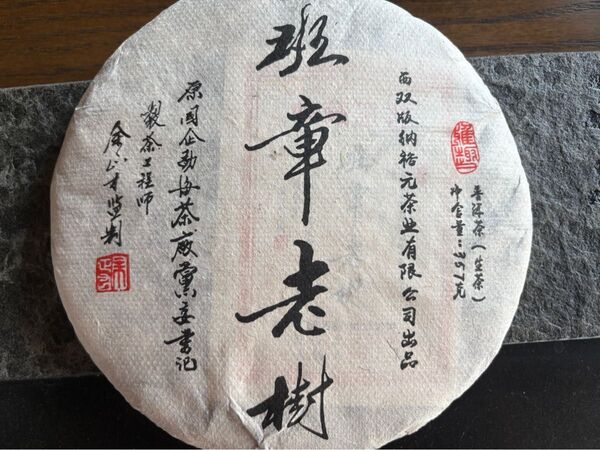 雅趣
普洱茶（生茶）
净含量：357克
西双版纳裕元茶业有限公司出品
班章老樹
原国企勐海茶厰黨委書记
製茶工程师
监制